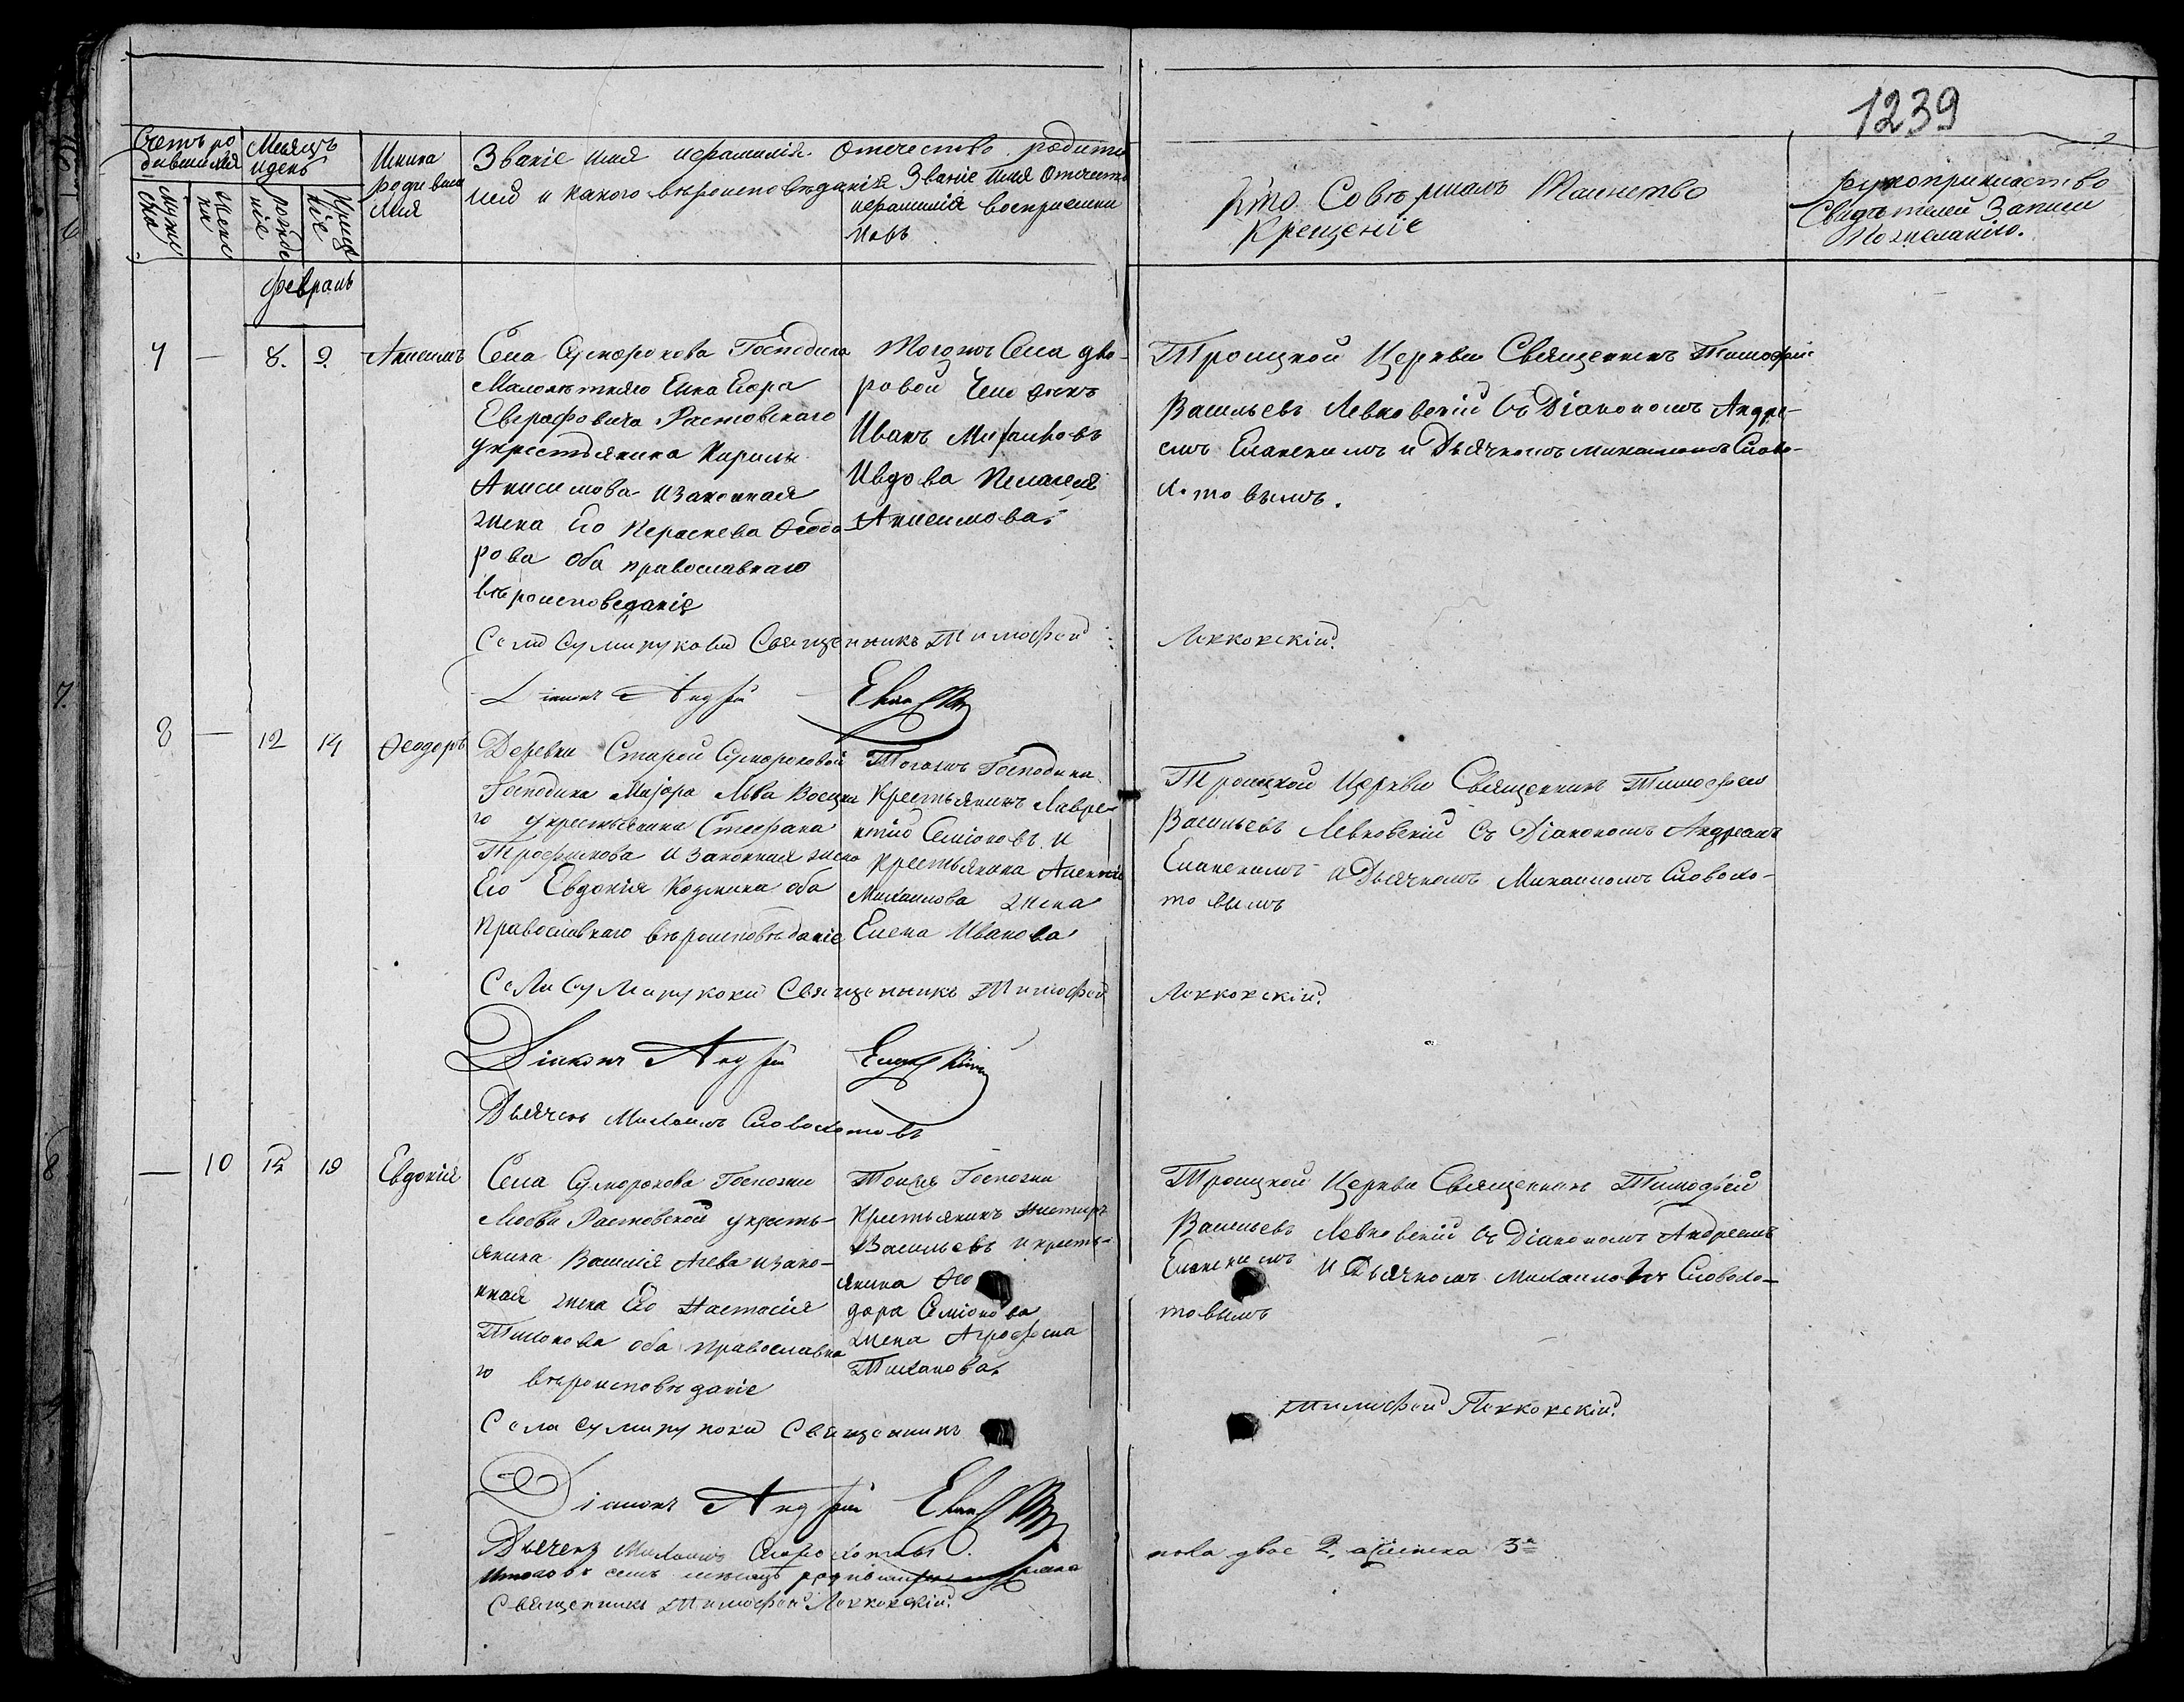 1239
Счетъ ро
дившихся
Мужес
ска
Женс
ка
Месяцъ
идень
рожде
ніе
Крище
ніе
Имина
родивши
хся
Званіе имя ифамилія Отчество родите
лей и какого вѣроисповѣданія
Званіе Имя Отчество
ифамилія восприемни
ковъ
Кто Совѣршалъ Таинство
Крещеніе
рукоприкласство
Свидѣтелей Записи
Пожеланію.
февраль
7
—
8.
9.
Анисимъ
Села Суморокова Господина
Малолѣтняго Егора
Евграфовича Растовскаго
укрестьянина Кирилы
Анисимова изаконная
жена Его Пераскева Ѳеодо
рова оба православнаго
вѣроисповеданія
Тогожъ Села дво-
ровой Человекъ
Иванъ
Ивдова Пелагея
Анисимова.
Троицкой Церкви Священникъ Тимофей
Васильевъ Левковскій Съ Діакономъ Андре-
емъ Еланскимъ и Дьячкомъ Михаиломъ Слово-
хотовымъ.
Села Сумарукова Священникъ Тимофей
Левковскій.
Діаконъ Андрей
8
—
12
14
Ѳеодоръ
Деревни Старой Сумороковой
Господина Маіора Льва Воецка
го укрестьянина Стефана
Трофимова изаконная жена
Его Евдокія Козмина оба
Православнаго вѣроисповѣданіе
Тогожъ Господина
Крестьянинъ Лавре-
нтій Семіоновъ и
Крестьянина Алексѣя
Михаилова жена
Елена Иванова
Троицкой Церкви Священникъ Тимофей
Васильевъ Левковскій Съ Діакономъ Андреемъ
Еланскимъ и Дьячкомъ Михаиломъ Словохо-
товымъ
Села Сумарукова Священникъ Тимофей
Левковскій.
Діаконъ Андрей
Дьячекъ Михаилъ Словохотовъ
—
10
19
Евдокія
Села Суморокова Госпожи
Любви Растовской укресть-
янина Василія изако-
нная жена Его Настасія
оба православна
го вѣроисповѣданіе
Тояжъ Госпожи
Крестьянинъ
Васильевъ икресть-
янина Ѳео
дора Семіонова
жена Агрофена
Тиханова.
Троицкой Церкви Священникъ Тимофей
Васильевъ Левковскій Съ Діакономъ Андреемъ
Еланскимъ и Дьячкомъ Михаиломъ Словохо-
товымъ
Села Сумарукова Священникъ
Тимофей Левковскій.
Діаконъ Андрей
Дьячекъ Михаилъ Словохотовъ
Итого въ семъ месяцѣ
пола двое 2, аженска 3^а
Священникъ Тимофей Левковскій.